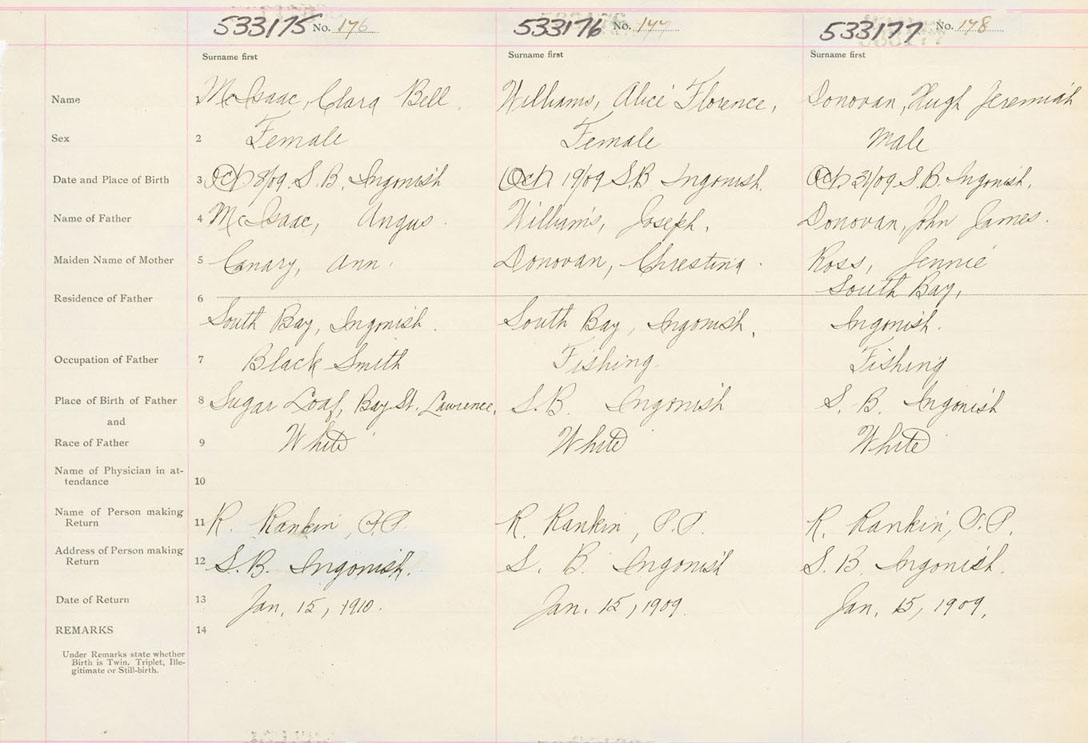 533175 No. 176 533176 No. 177 533177 No. 178
Surname first Surname first Surname first
Name 1 McIsaac, Clara Bell. Williams, Alice Florence, Donovan, Hugh Jeremiah
Sex 2 Female Female Male
Date and Place of Birth 3 Oct 8/09. S.B. Ingonish Oct 19/09 S.B Ingonish. Oct 31/09 S.B. Ingonish.
Name of Father 4 McIsaac, Angus. Williams, Joseph. Donovan, John James.
Maiden Name of Mother 5 Canary, Ann. Donovan, Christina. Ross, Jennie
Residence of Father 6 South Bay,
South Bay, Ingonish. South Bay, Ingonish. Ingonish.
Occupation of Father 7 Black Smith Fishing. Fishing
Place of Birth of Father 8 Sugar Loaf, Bay St. Lawrence. S.B. Ingonish S. B. Ingonish
and
Race of Father 9 White White White
Name of Physician in at-
tendance 10
Name of Person making
Return 11 R. Rankin, P.P. R. Rankin, P.P. R. Rankin, P.P.
Address of Person making
Return 12 S.B. Ingonish. S. B. Ingonish S. B Ingonish.
Date of Return 13 Jan. 15, 1910. Jan. 15, 1909. Jan. 15, 1909.
REMARKS 14
Under Remarks state whether
Birth is Twin, Triplet, Ille-
gitimate or Still-birth.